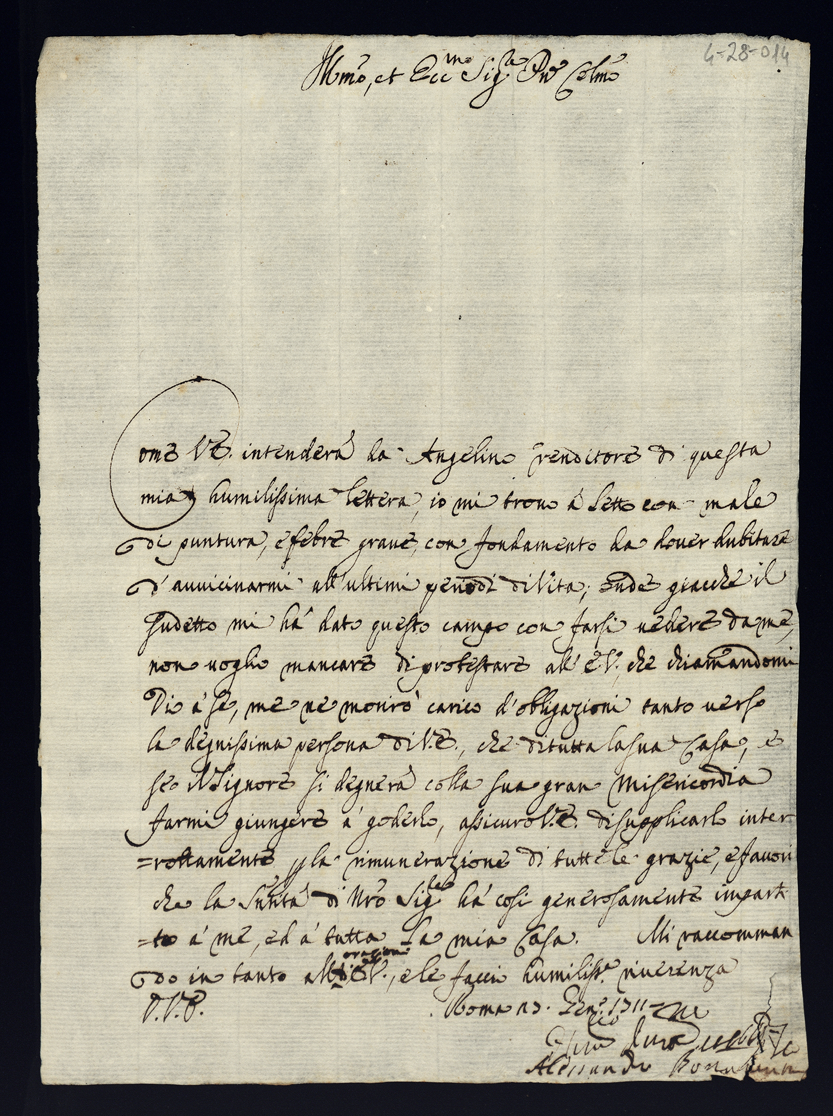 4-28-014
Illmo, et Eccmo Sigre Pne Colmo
Come V.E. intenderà da Angelino renditore di questa
mia humilissima lettera, io mi trovo à letto con male
di puntura, e febre grave, con fondamento da dover dubitare
d'avvicinarmi all'ultimi periodi di Vita; onde giacche il
sudetto mi hà dato questo campo con farsi vedere da me,
non voglio mancare di protestare all'E.V., che chiamandomi
Dio à se, me ne morirò carico d'obligazioni tanto verso
la degnissima persona di V.E., che di tutta la sua Casa, e
se il Signore si degnerà colla sua gran Misericordia
farmi giungere à goderlo, assicuro V.E. di supplicarlo inter
=rottamente la rimunerazione di tutte le grazie, e favori
che la Santità di Nro Sigre hà così generosamente imparti
=to à me, ed à tutta la mia Casa. Mi raccomman
do in tanto all' orazioni di V.E., e le faccio humilissa riverenza
D.V.E. Roma Genro 1711
Alessandro